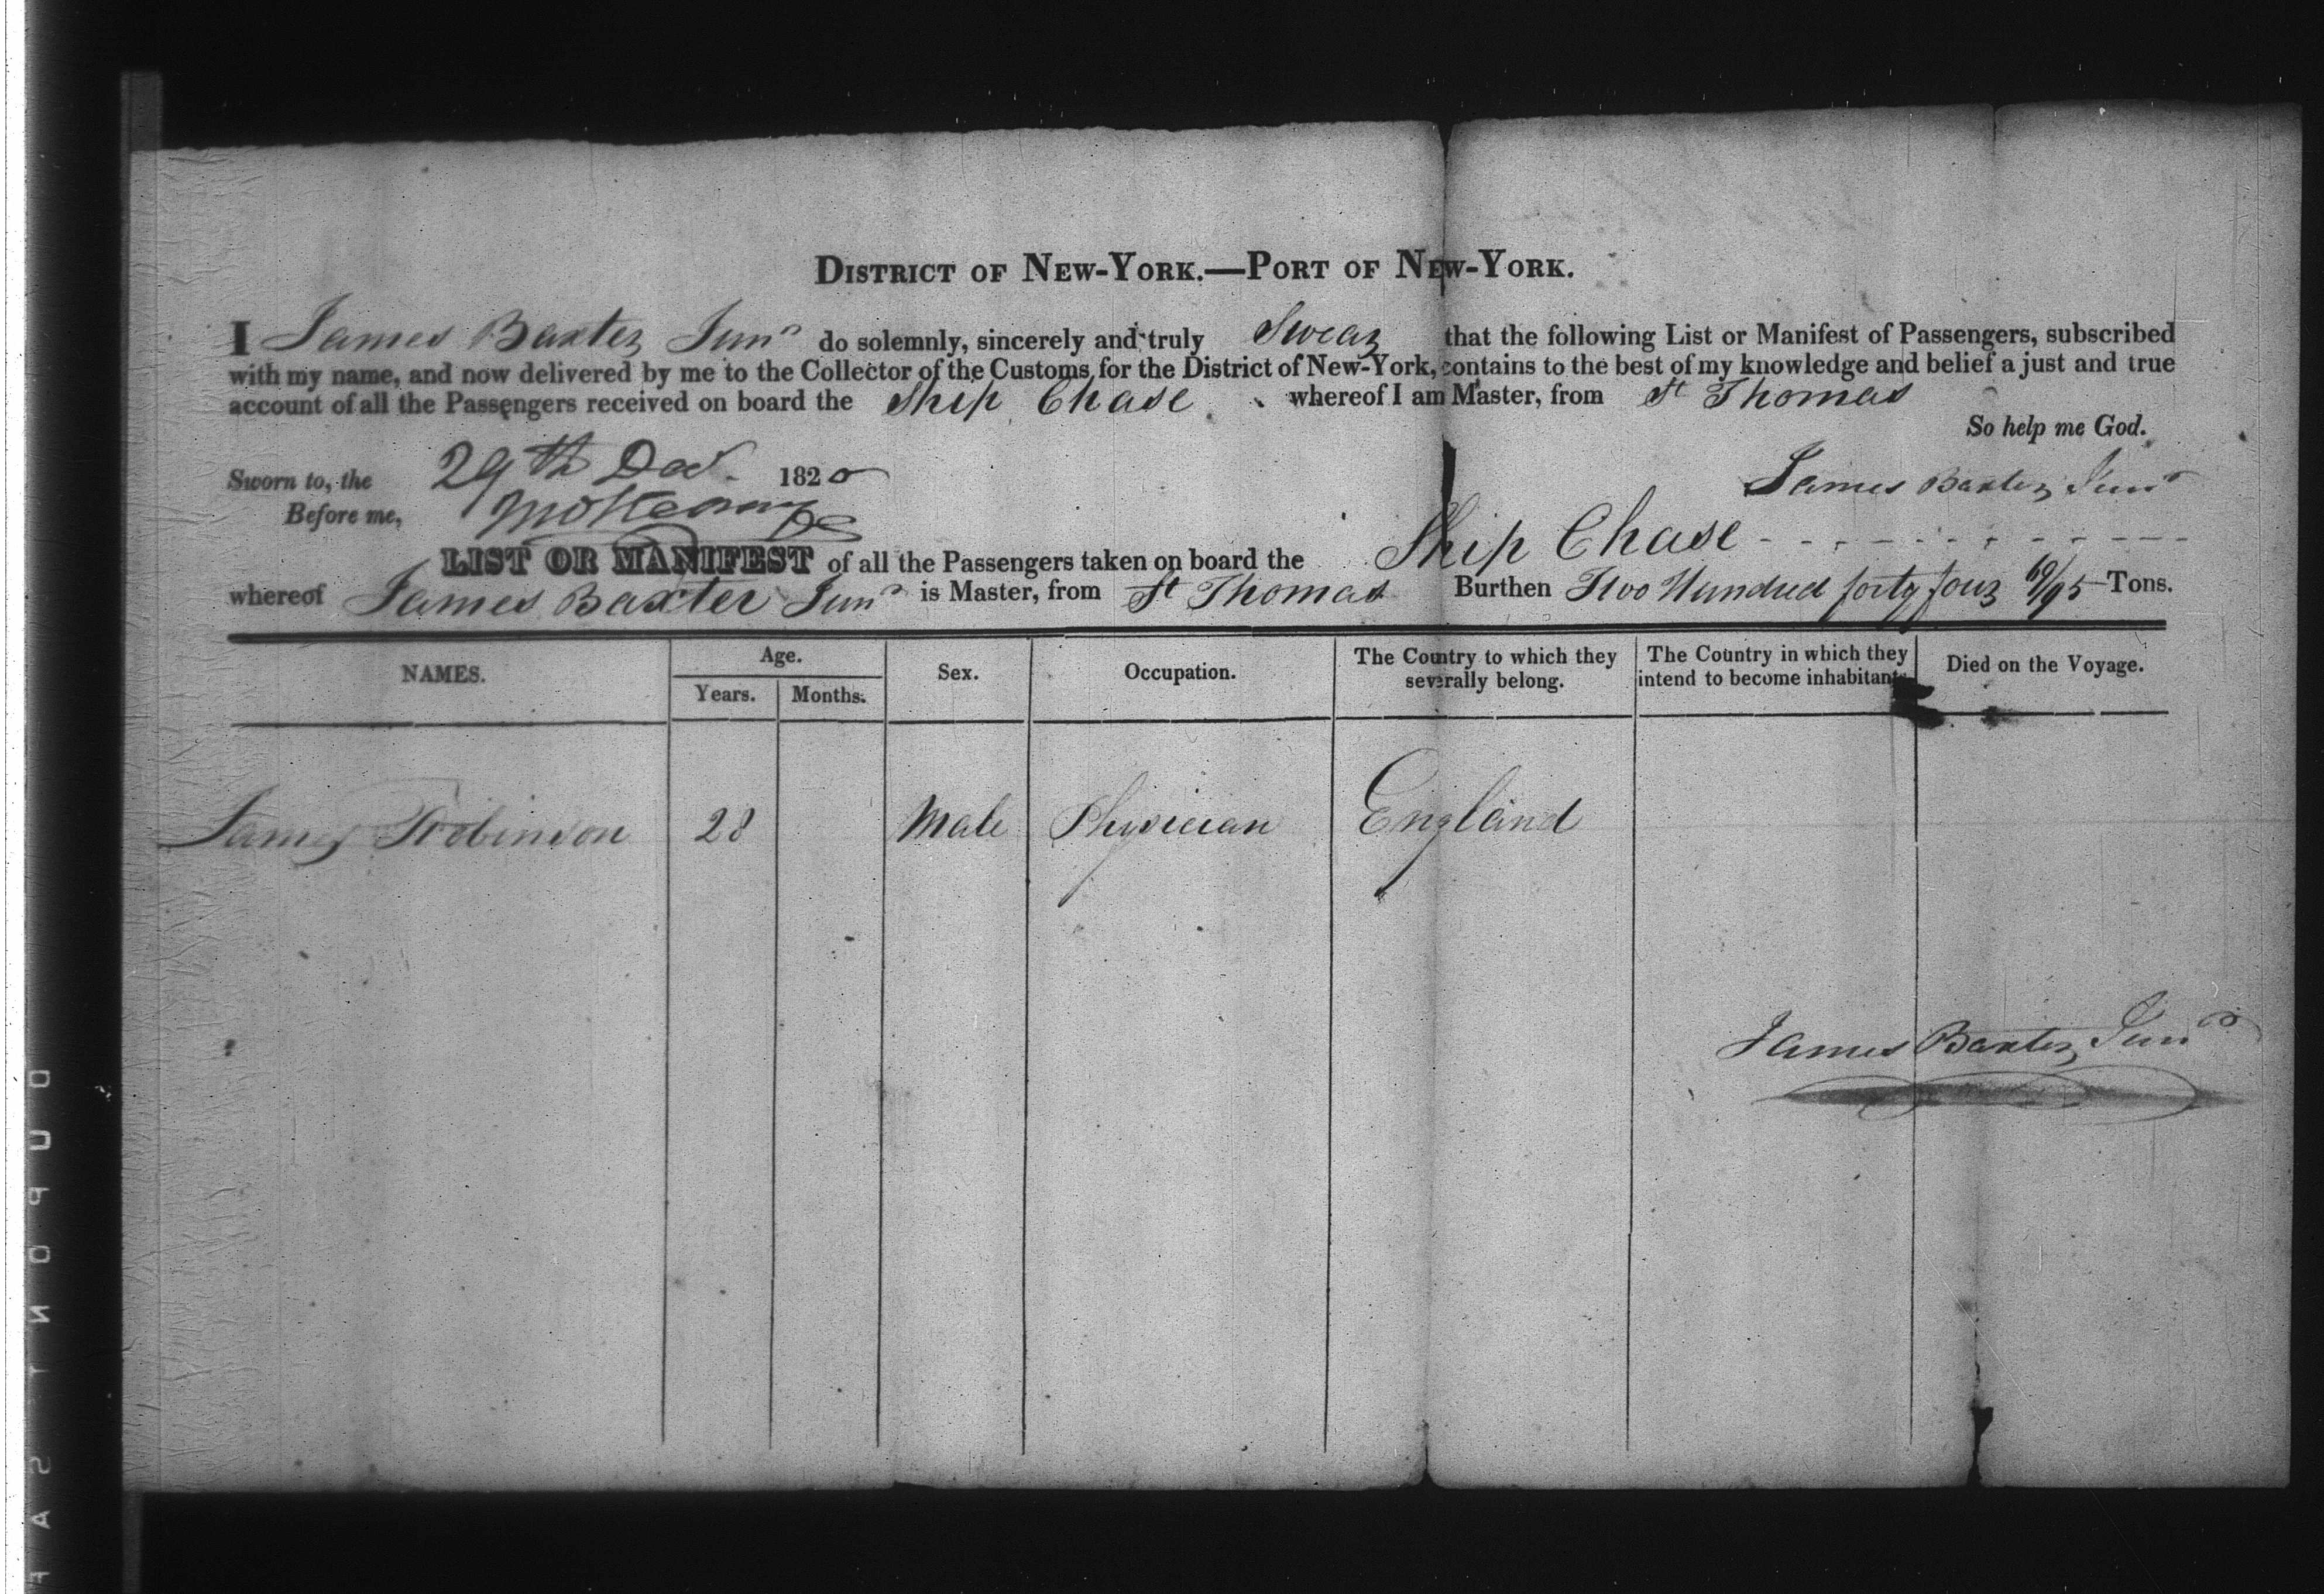 DISTRICT OF NEW-YORK.—PORT OF NEW-YORK.
I James Baxter Junr do solemnly, sincerely and truly Swear that the following List or Manifest of Passengers, subscribed
with my name, and now delivered by me to the Collector of the Customs for the District of New-York, contains to the best of my knowledge and belief a just and true
account of all the Passengers received on board the Ship Chase whereof I am Master, from St Thomas
So help me God.
Sworn to, the 29th Dec. 1820
James Baxter Junr
Before me,
LIST OR MANIFEST of all the Passengers taken on board the Ship Chase
whereof James Baxter Junr is Master, from St Thomas Burthen Two Hundred forty four 69/95 Tons.
NAMES. Age. Years. Months. Sex. Occupation. The Country to which they severally belong. The Country in which they intend to become inhabitants. Died on the Voyage.
James Robinson 28 Male Physician England
James Baxter Junr
DUPONT SAF